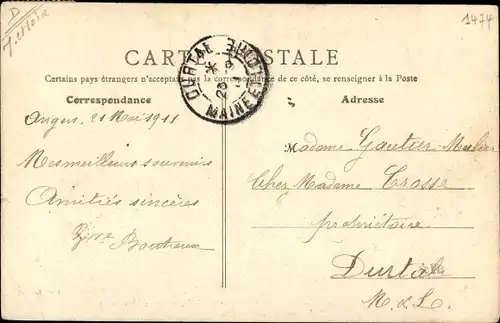 D
1474
CARTE POSTALE
Certains pays étrangers n'acceptant pas la correspondance de ce côté, se renseigner à la Poste
DURTAL
MAINE ET LOIRE
Correspondance
Adresse
Angers, 21 Mai 1911
Mes meilleurs souvenirs
Amitiés sincères
Madame Gautier
Chez Madame Crosse
propriétaire
Durtal
M. & L.